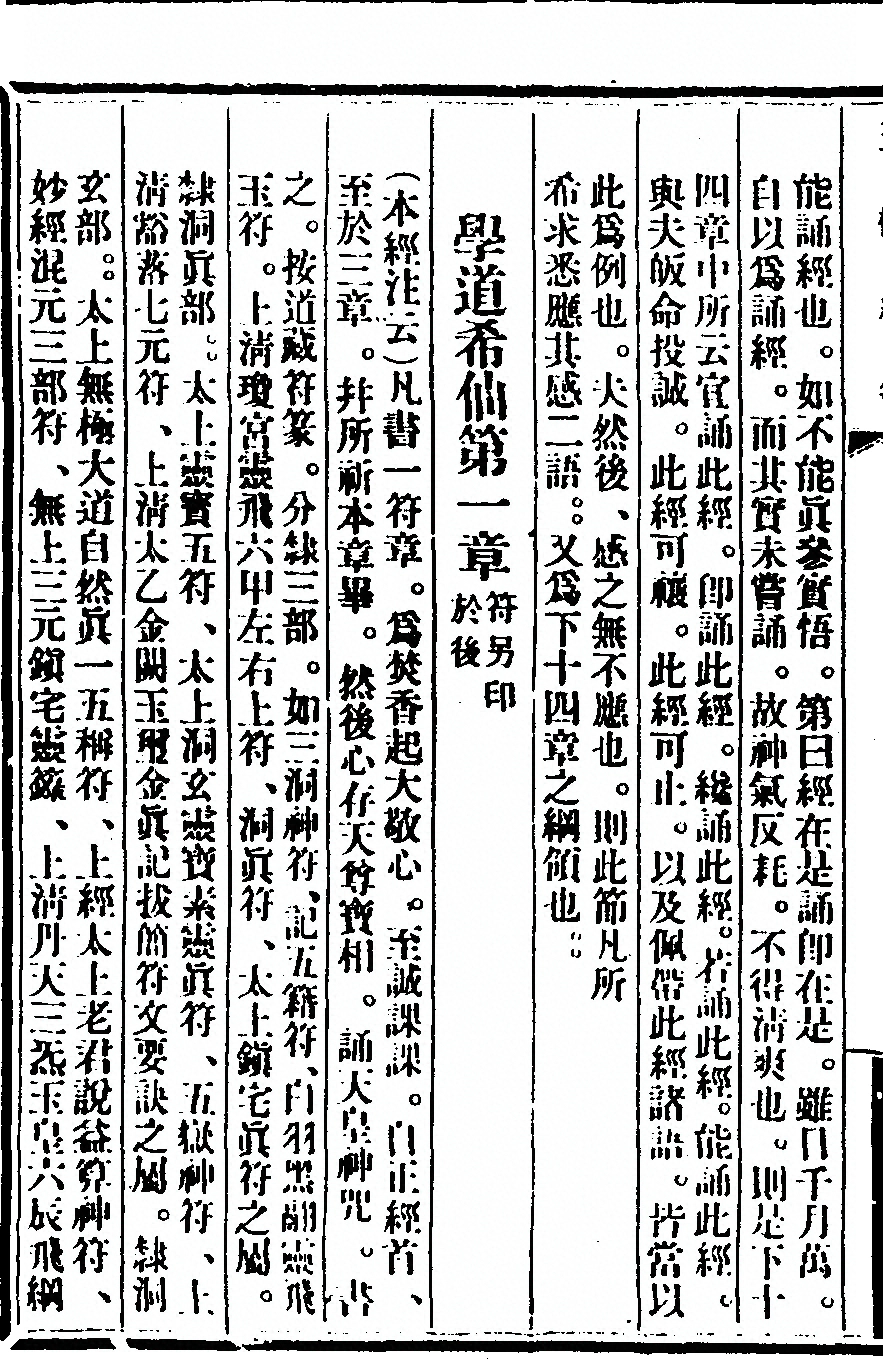 能誦經也。如不能眞參實悟。第曰經在是誦卽在是。雖日千月萬。
自以爲誦經。而其實未嘗誦。故神氣反耗。不得淸爽也。則是下十
四章中所云宜誦此經。卽誦此經。總誦此經。若誦此經。能誦此經。
與夫皈命投誠。此經可禳。此經可止。以及佩帶此經諸語。皆當以
此爲例也。夫然後、感之無不應也。則此節凡所
希求悉應其感二語。。又爲下十四章之綱領也。。
學道希仙第一章
符另印
於後
(本經注云)凡書一符章。爲焚香起大敬心。至誠課課。自正經首、
至於三章。幷所祈本章畢。然後心存天尊寶相。誦天皇神咒。書
之。按道藏符篆。分隸三部。如三洞神符、記五籍符、白羽黑翮靈飛
玉符。上淸瓊宮靈飛六甲左右上符、洞眞符、太上鎭宅眞符之屬。
隸洞眞部。。太上靈寶五符、太上洞玄靈寶素靈眞符、五嶽神符、上
淸豁落七元符、上淸太乙金闕玉璽金眞記拔簡符文要訣之屬。隸洞
玄部。。太上無極大道自然眞一五稱符、上經太上老君說益算神符、
妙經混元三部符、無上三元鎭宅靈籙、上淸丹天三炁玉皇六辰飛綱